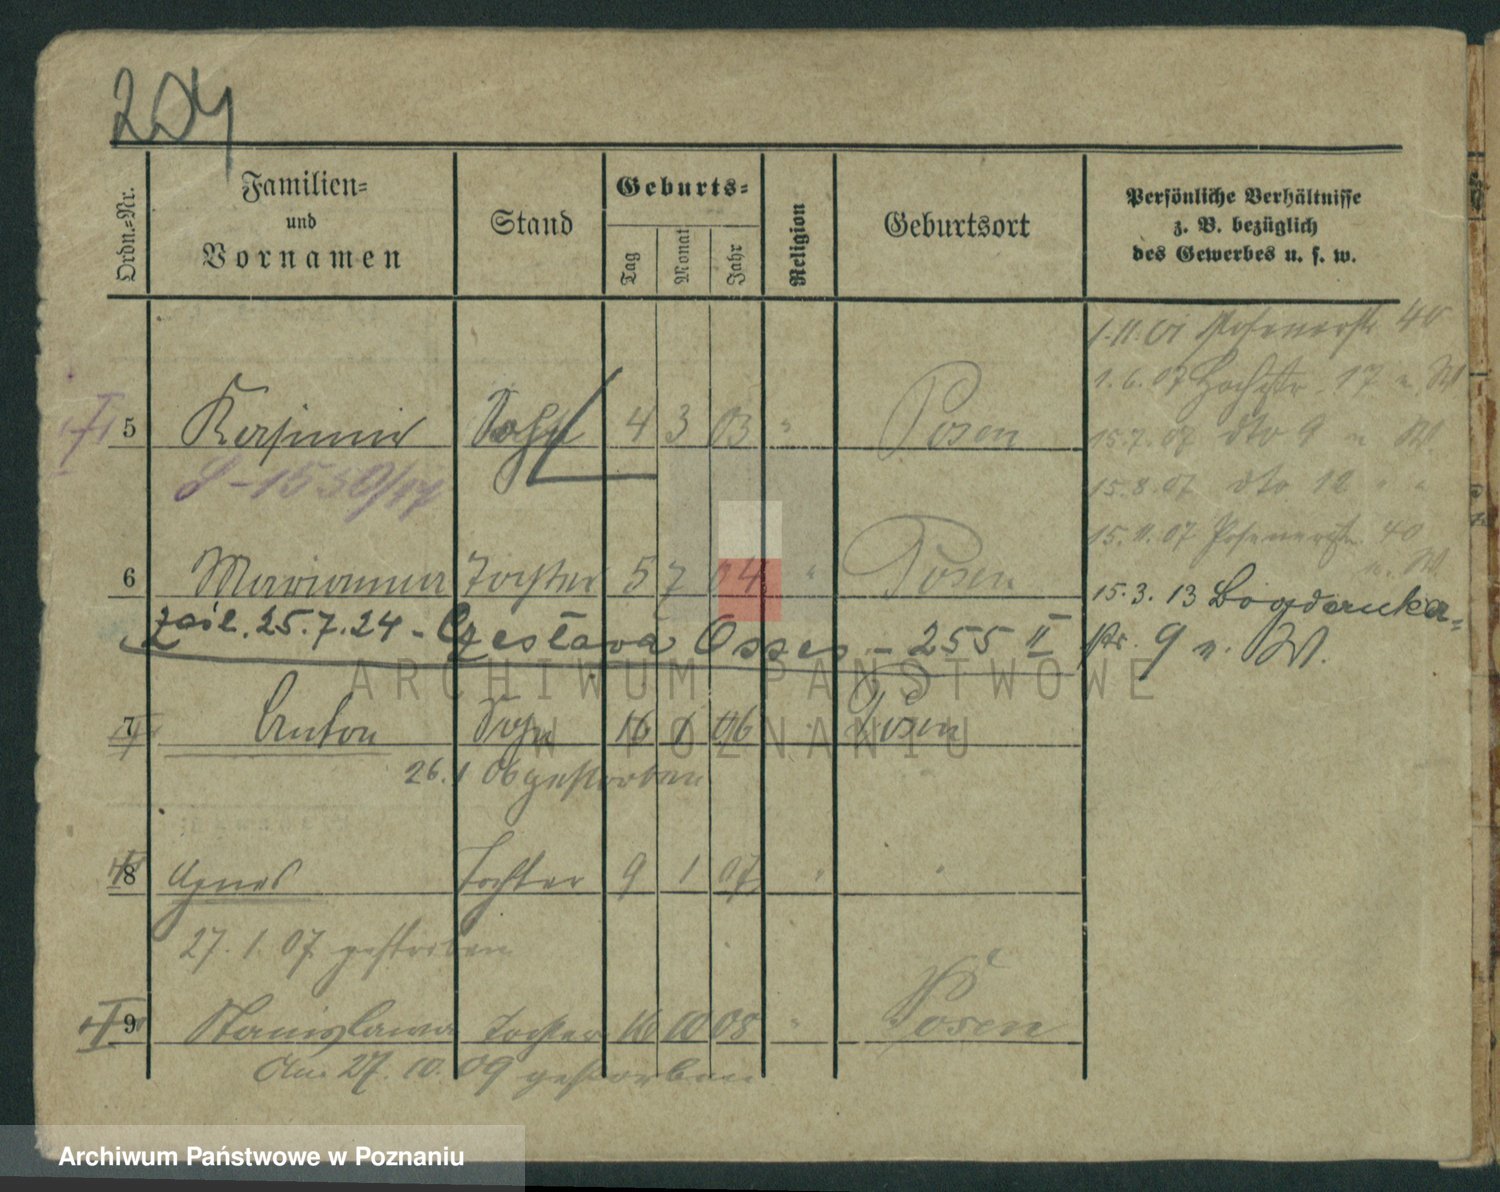 204
Ordn.=Nr.
Familien=
und
Vornamen
Stand
Geburts=
Tag
Monat
Jahr
Religion
Geburtsort
Persönliche Verhältnisse
z. B. bezüglich
des Gewerbes u. s. w.
1.11.01 Posenerstr 40
1.6.07 Hochstr. 17 u. W
5 Kasimir Sohn 4 3 03 " Posen
15.7.07 dto 9 u W.
S-1530/
15.8.07 dto 12 " "
15.11.07 Posenerstr. 40
u. W
6 Marianna Tochter 5 7 04 " Posen
15.3.13 Bogdanka=
zaśl. 25.7.24 - Czesława Osses - 255 II
str. 9 u. W.
7 Anton Sohn 16 1 06 " Posen
26.1 06 gestorben
8 Agnes Tochter 9 1 07 " "
27.1.07 gestorben
9 Stanislawa Tochter 16 10 08 " Posen
Am 27.10.09 gestorben
ARCHIWUM PAŃSTWOWE
W POZNANIU
Archiwum Państwowe w Poznaniu